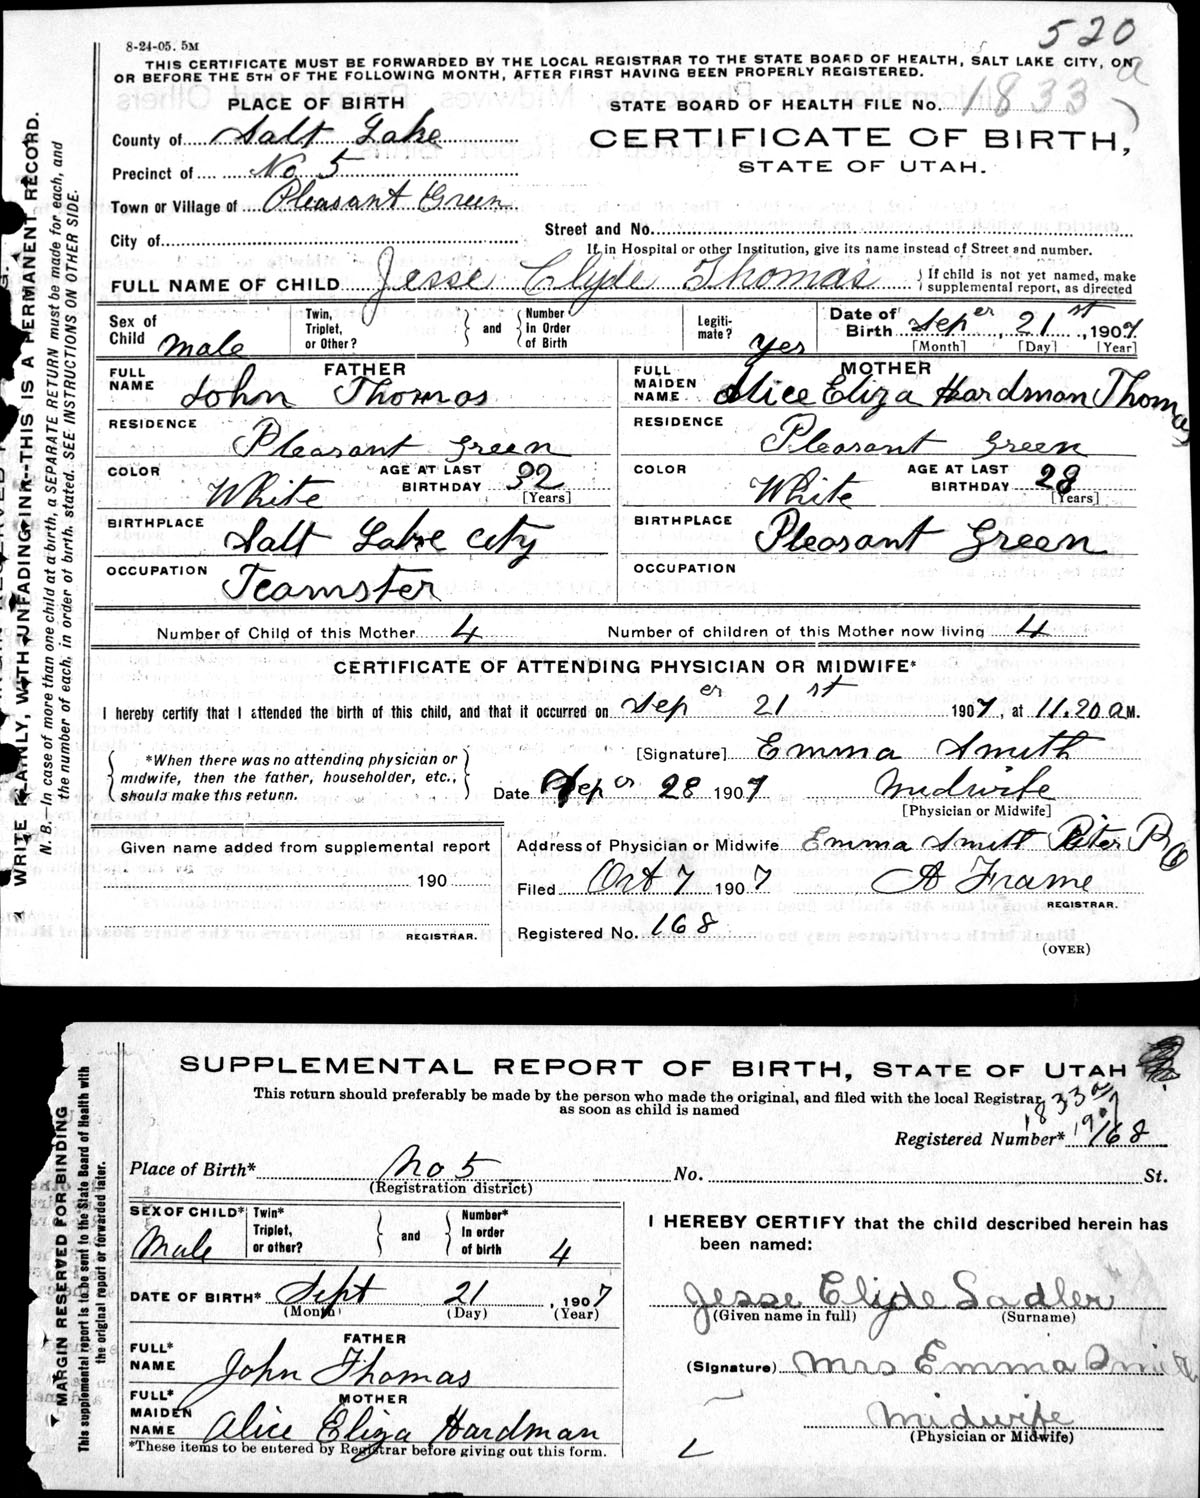 520
8-24-05. 5M
THIS CERTIFICATE MUST BE FORWARDED BY THE LOCAL REGISTRAR TO THE STATE BOARD OF HEALTH, SALT LAKE CITY, ON
OR BEFORE THE 5TH OF THE FOLLOWING MONTH, AFTER FIRST HAVING BEEN PROPERLY REGISTERED.
PLACE OF BIRTH
STATE BOARD OF HEALTH FILE No. 1833 a
County of Salt Lake
CERTIFICATE OF BIRTH,
STATE OF UTAH.
Precinct of No 5
Town or Village of Pleasant Green
City of
Street and No.
If in Hospital or other Institution, give its name instead of Street and number.
FULL NAME OF CHILD Jesse Clyde Thomas
If child is not yet named, make
supplemental report, as directed
Sex of
Child male
Twin,
Triplet,
or Other?
and
Number
in Order
of Birth
Legiti-
mate? yes
Date of
Birth Sep er 21 st, 1907
[Month] [Day] [Year]
FATHER
FULL
NAME John Thomas
RESIDENCE Pleasant Green
COLOR White
AGE AT LAST
BIRTHDAY 32
[Years]
BIRTHPLACE Salt Lake City
OCCUPATION Teamster
MOTHER
FULL
MAIDEN
NAME Alice Eliza Hardman Thomas
RESIDENCE Pleasant Green
COLOR White
AGE AT LAST
BIRTHDAY 28
[Years]
BIRTHPLACE Pleasant Green
OCCUPATION
Number of Child of this Mother 4
Number of children of this Mother now living 4
CERTIFICATE OF ATTENDING PHYSICIAN OR MIDWIFE*
I hereby certify that I attended the birth of this child, and that it occurred on Sep er 21 st 1907, at 11.20 a M.
*When there was no attending physician or
midwife, then the father, householder, etc.,
should make this return.
[Signature] Emma Smith
Date Sep er 28 1907 Midwife
[Physician or Midwife]
Given name added from supplemental report
190
REGISTRAR.
Address of Physician or Midwife Emma Smith
Filed Oct 7 1907 A Frame
REGISTRAR.
Registered No. 168
(OVER)
WRITE PLAINLY, WITH UNFADING INK--THIS IS A PERMANENT RECORD.
N. B.—In case of more than one child at a birth, a SEPARATE RETURN must be made for each, and
the number of each, in order of birth, stated. SEE INSTRUCTIONS ON OTHER SIDE.
SUPPLEMENTAL REPORT OF BIRTH, STATE OF UTAH
This return should preferably be made by the person who made the original, and filed with the local Registrar
as soon as child is named
1833 a
1907
Registered Number* 168
Place of Birth* No 5 No. St.
(Registration district)
SEX OF CHILD*
Male
Twin*
Triplet,
or other?
and
Number*
In order
of birth 4
DATE OF BIRTH* Sept 21, 1907
(Month) (Day) (Year)
FATHER
FULL*
NAME John Thomas
MOTHER
FULL*
MAIDEN
NAME Alice Eliza Hardman
*These items to be entered by Registrar before giving out this form.
I HEREBY CERTIFY that the child described herein has
been named:
Jesse Clyde Sadler
(Given name in full) (Surname)
(Signature) Mrs Emma Smith
Midwife
(Physician or Midwife)
MARGIN RESERVED FOR BINDING
This supplemental report is to be sent to the State Board of Health with
the original report or forwarded later.